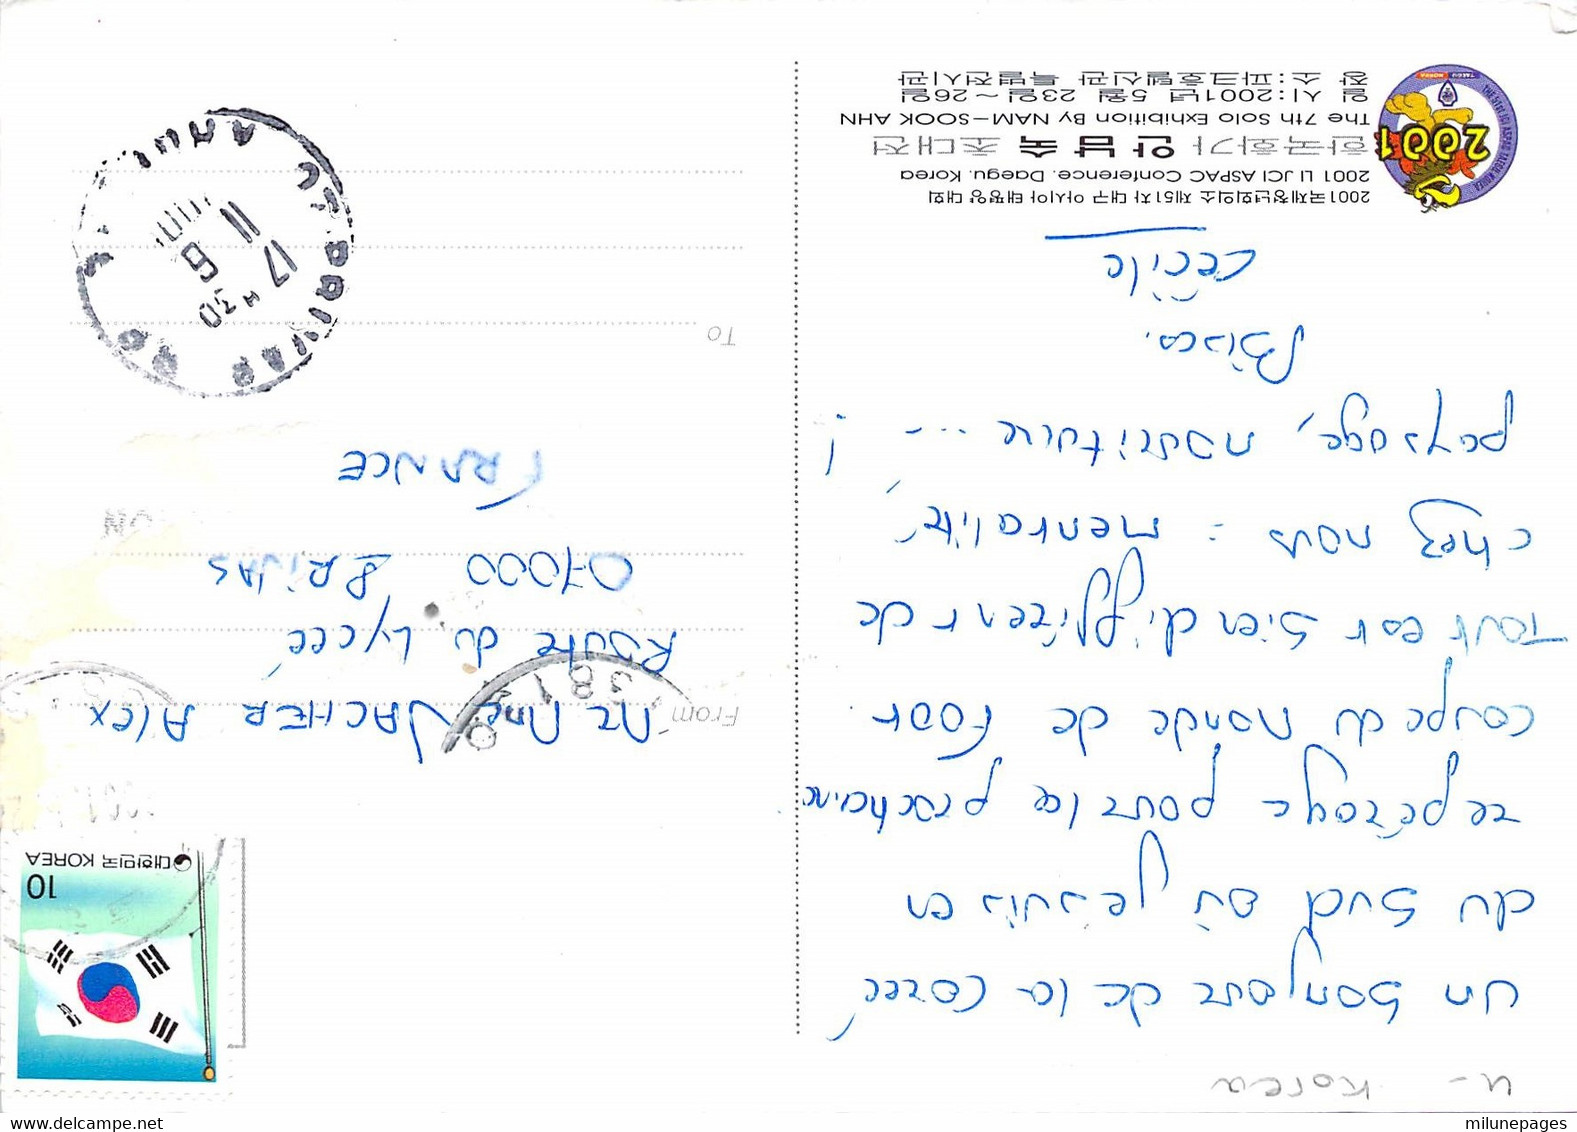 u - Korea
un bonjour de la Corée
du Sud où je suis en
repérage pour la prochaine
coupe du Monde de Foot.
Tout est bien différent de
chez nous : mentalité,
paysage, nourriture ... !
Bises.
Cécile
2001국제청년회의소 제51차 대구 아시아 태평양 대회
2001 LI JCI ASPAC Conference. Daegu. Korea
한국화가 안남숙 초대전
The 7th Solo Exhibition By NAM-SOOK AHN
일 시:2001년 5월 23일~26일
장 소:파크호텔신관 특별전시관
2001
TAEGU KOREA
대한민국 KOREA
10
From
Mr Mme VACHER Alex
Route du Lycée
07000 PRIVAS
FRANCE
To
381
17 H 30
11 6
07 PRIVAS
milunepages
delcampe.net